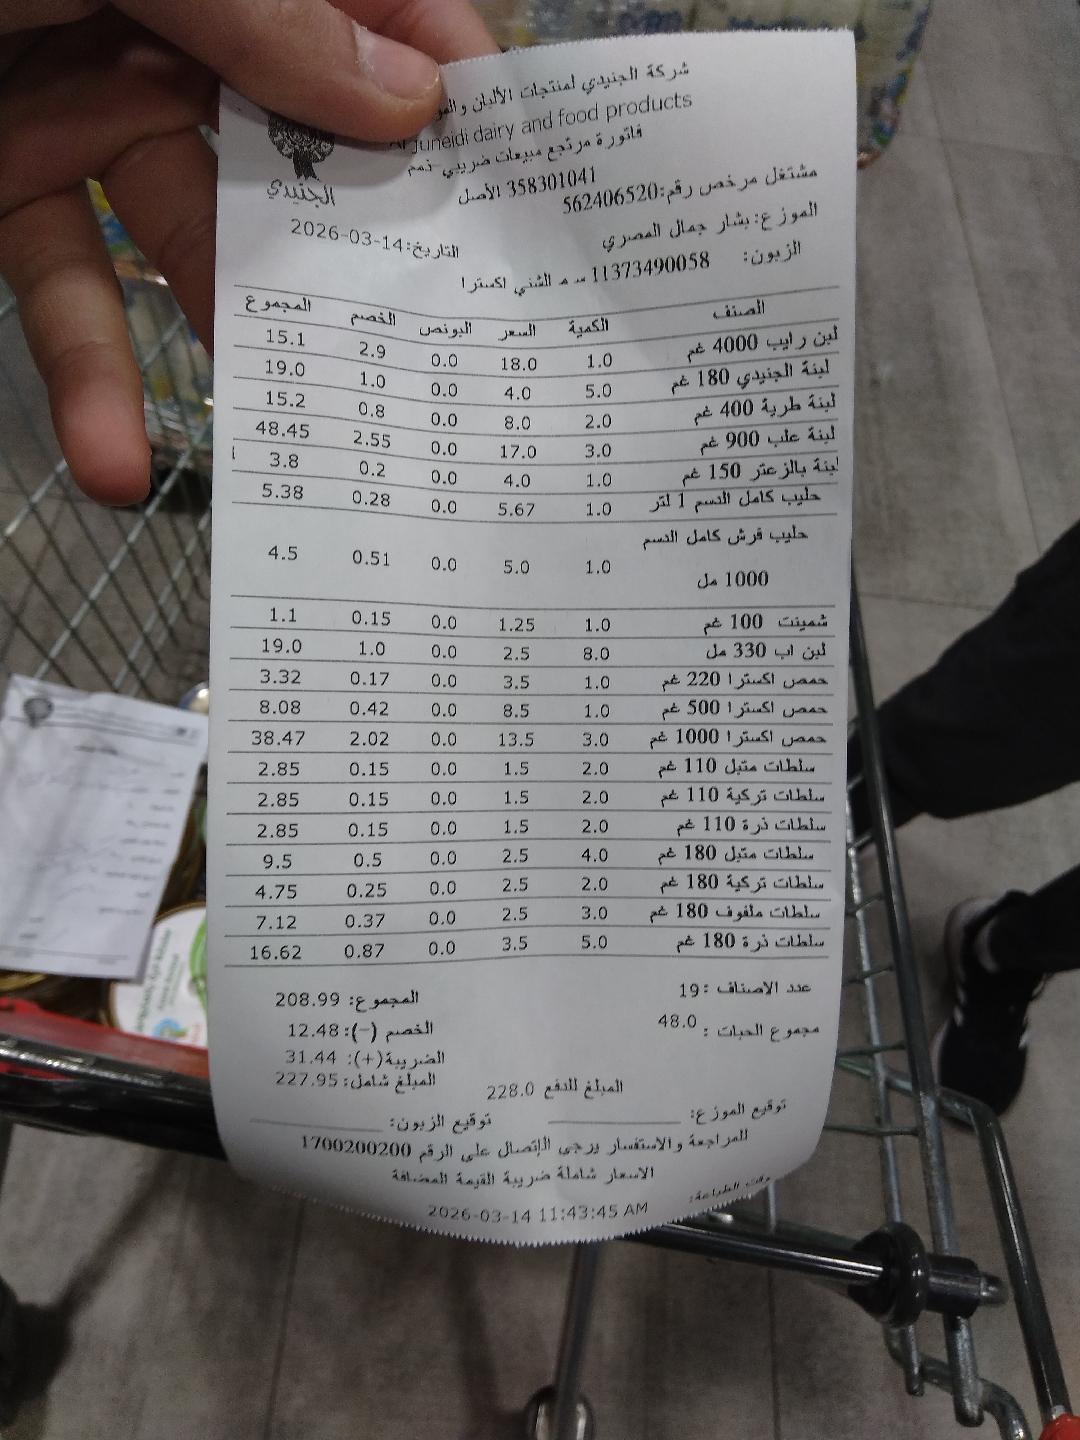 شركة الجنيدي لمنتجات الألبان
Al Juneidi dairy and food products
الجنيدي
فاتورة مرتجع مبيعات ضريبي ذمم
358301041 الأصل
مشتغل مرخص رقم:562406520
الموزع: بشار جمال المصري
التاريخ:2026-03-14
الزبون: 11373490058 س م الشني اكسترا
الصنف الكمية السعر البونص الخصم المجموع
لبن رايب 4000 غم 1.0 18.0 0.0 2.9 15.1
لبنة الجنيدي 180 غم 5.0 4.0 0.0 1.0 19.0
لبنة طرية 400 غم 2.0 8.0 0.0 0.8 15.2
لبنة علب 900 غم 3.0 17.0 0.0 2.55 48.45
لبنة بالزعتر 150 غم 1.0 4.0 0.0 0.2 3.8
حليب كامل الدسم 1 لتر 1.0 5.67 0.0 0.28 5.38
حليب فرش كامل الدسم 1000 مل 1.0 5.0 0.0 0.51 4.5
شمينت 100 غم 1.0 1.25 0.0 0.15 1.1
لبن اب 330 مل 8.0 2.5 0.0 1.0 19.0
حمص اكسترا 220 غم 1.0 3.5 0.0 0.17 3.32
حمص اكسترا 500 غم 1.0 8.5 0.0 0.42 8.08
حمص اكسترا 1000 غم 3.0 13.5 0.0 2.02 38.47
سلطات متبل 110 غم 2.0 1.5 0.0 0.15 2.85
سلطات تركية 110 غم 2.0 1.5 0.0 0.15 2.85
سلطات ذرة 110 غم 2.0 1.5 0.0 0.15 2.85
سلطات متبل 180 غم 4.0 2.5 0.0 0.5 9.5
سلطات تركية 180 غم 2.0 2.5 0.0 0.25 4.75
سلطات ملفوف 180 غم 3.0 2.5 0.0 0.37 7.12
سلطات ذرة 180 غم 5.0 3.5 0.0 0.87 16.62
عدد الاصناف :19 المجموع: 208.99
مجموع الحبات : 48.0 الخصم (-): 12.48
الضريبة(+): 31.44
المبلغ شامل: 227.95
المبلغ للدفع 228.0
توقيع الموزع: توقيع الزبون:
للمراجعة والاستفسار يرجى الإتصال على الرقم 1700200200
الاسعار شاملة ضريبة القيمة المضافة
وقت الطباعة:
2026-03-14 11:43:45 AM